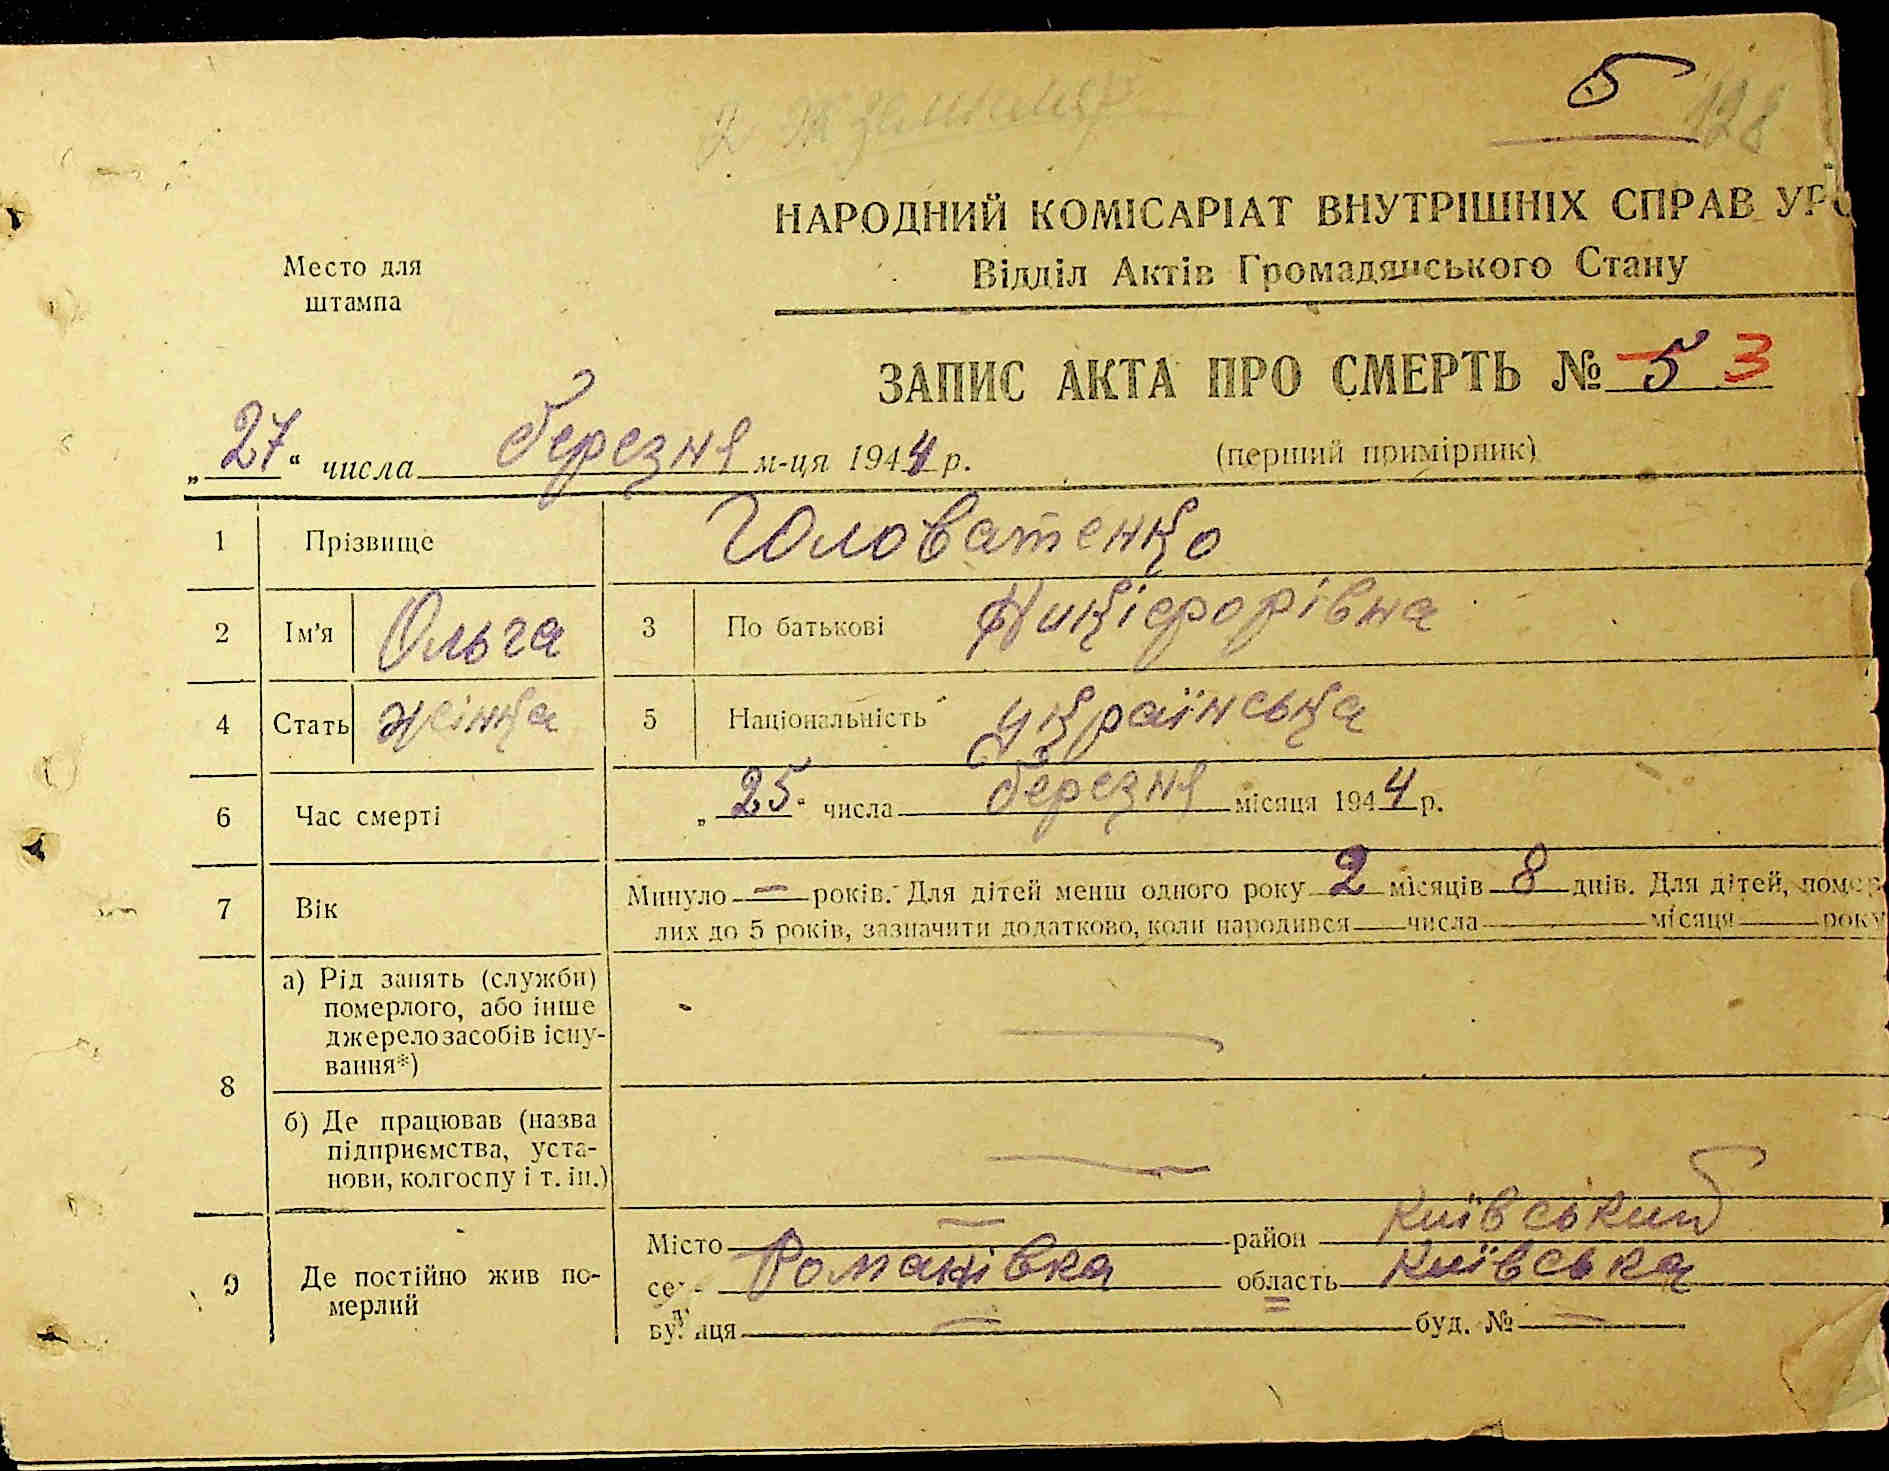 5 128
НАРОДНИЙ КОМІСАРІАТ ВНУТРІШНІХ СПРАВ УРС
Место для
штампа
Відділ Актів Громадянського Стану
ЗАПИС АКТА ПРО СМЕРТЬ № 5 3
„27“ числа березня м-ця 1944 р.
(перший примірник)
1 Прізвище Головатенко
2 Ім'я Ольга 3 По батькові Никіфорівна
4 Стать жінка 5 Національність українська
6 Час смерті „25“ числа березня місяця 1944 р.
7 Вік Минуло — років. Для дітей менш одного року 2 місяців 8 днів. Для дітей, помер-
лих до 5 років, зазначити додатково, коли народився числа місяця року
8 а) Рід занять (служби)
померлого, або інше
джерело засобів існу-
вання*) —
б) Де працював (назва
підприємства, уста-
нови, колгоспу і т. ін.) —
9 Де постійно жив по-
мерлий
Місто — район Київський
село Романівка область Київська
вулиця — буд. № —